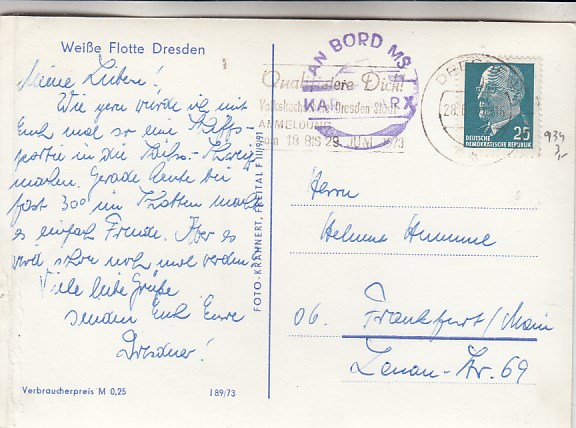 Weiße Flotte Dresden
Meine Lieben!
Wie gern würde ich mit
Euch mal so eine Schiffs-
partie in die Sächs.-Schweiz
machen. Gerade heute bei
fast 30° im Schatten macht
es einfach Freude. Aber es
wird schon noch mal werden.
Viele liebe Grüße
senden Euch Eure
Dresdner!
Verbraucherpreis M 0,25
J 89/73
FOTO-KRÄHNERT, FREITAL F III/9/91
AN BORD MS
KARL MARX
Qualifiziere Dich!
Volkshochschule Dresden Stadt
ANMELDUNG
vom 18 BIS 29. JUNI 1973
DRESDEN
28.6
DEUTSCHE
DEMOKRATISCHE REPUBLIK
25
934
3,-
Herrn
Helmut Hummel
06. Frankfurt/Main
Lenau-Str. 69